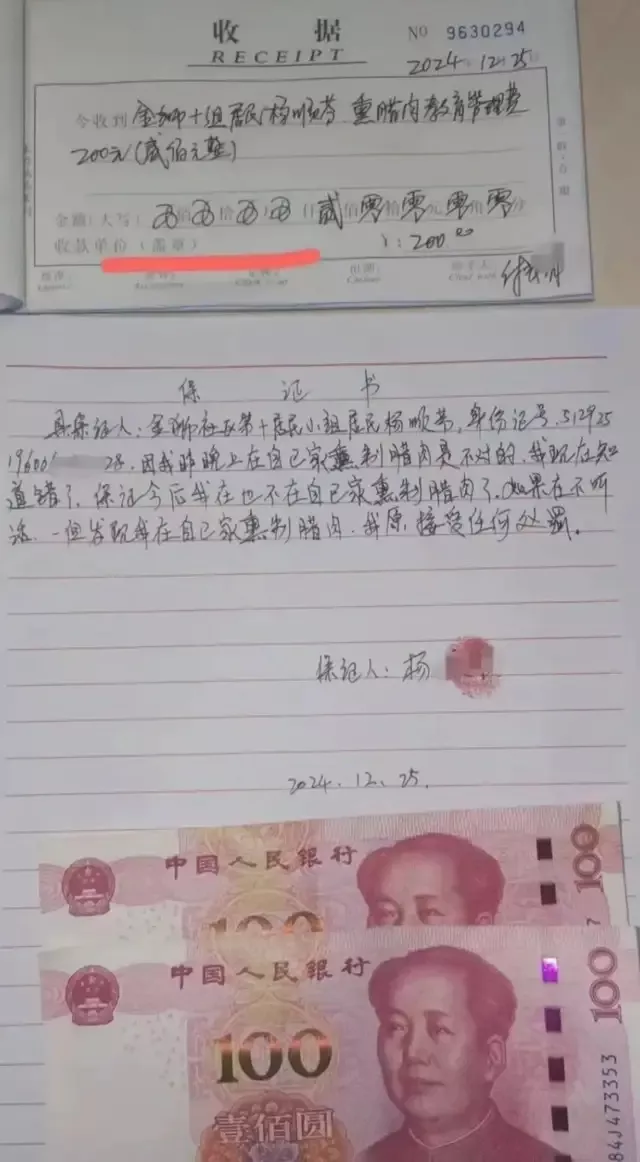 收 据
RECEIPT
No 9630294
2024.12.25
今收到 金狮十组居民杨顺芬 熏腊肉教育管理费
200元(贰佰元整)
金额:(大写) 佰 拾 万 仟 贰佰零拾零元零角零分
收款单位(盖章) ¥:200.00
保 证 书
具保证人:金狮社区第十居民小组居民杨顺芬,身份证号.512925
19600 28.因我昨晚上在自己家熏制腊肉是不对的.我现在知
道错了.保证今后我在也不在自己家熏制腊肉了.如果在不听
话.一但发现我在自己家熏制腊肉.我原接受任何处罚。
保证人:杨
2024.12.25.
中国人民银行
100
100
中国人民银行
100
100
壹佰圆
84J473353